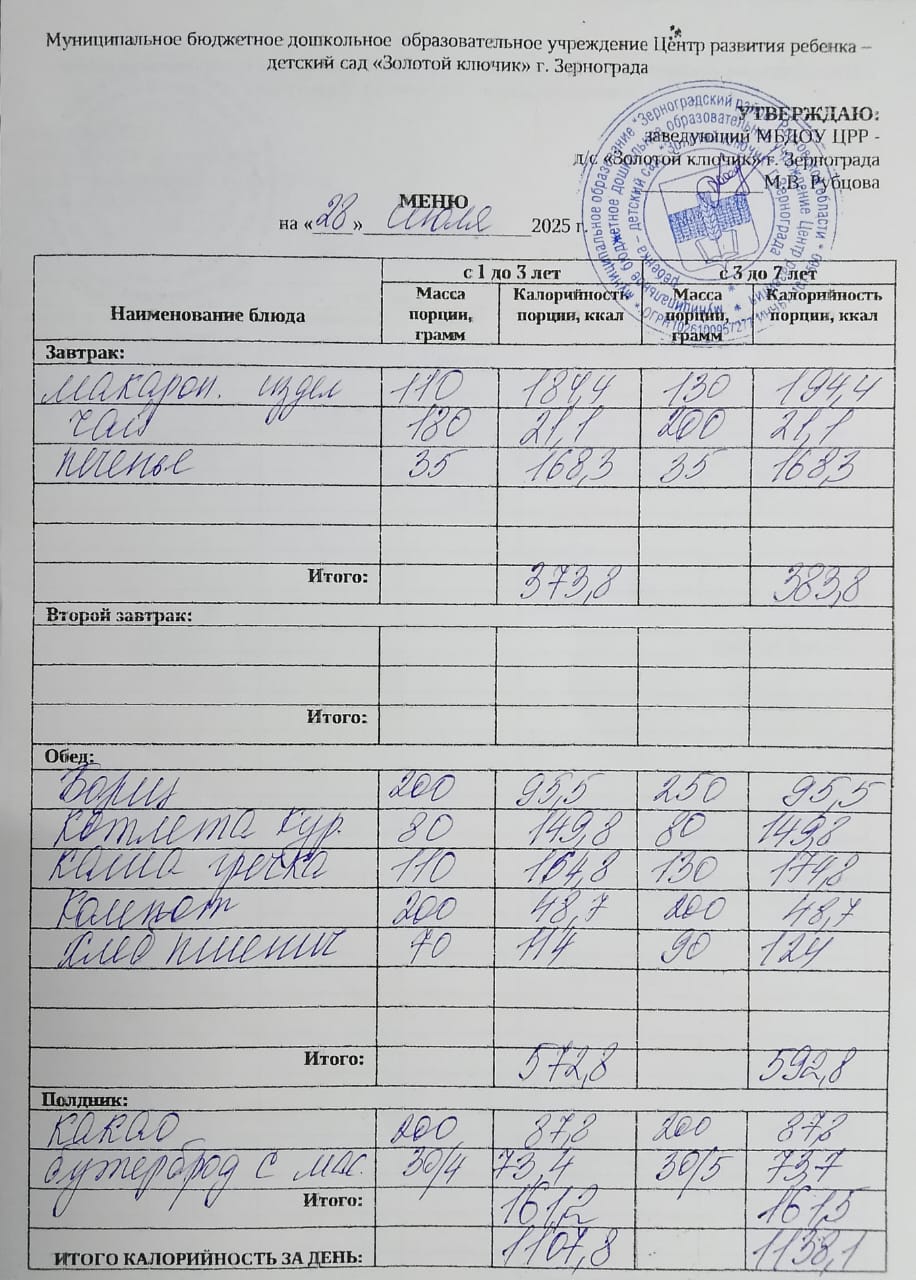 Муниципальное бюджетное дошкольное образовательное учреждение Центр развития ребенка –
детский сад «Золотой ключик» г. Зернограда
УТВЕРЖДАЮ:
заведующий МБДОУ ЦРР -
д/с «Золотой ключик» г. Зернограда
М.В. Рубцова
МЕНЮ
на «28» июля 2025 г.
Наименование блюда с 1 до 3 лет с 3 до 7 лет
Масса порции, грамм Калорийность порции, ккал Масса порции, грамм Калорийность порции, ккал
Завтрак:
макарон. издел 110 184,4 130 194,4
чай 180 21,1 200 21,1
печенье 35 168,3 35 168,3
Итого: 373,8 383,8
Второй завтрак:
Итого:
Обед:
Борщ 200 95,5 250 95,5
котлета кур. 80 149,8 80 149,8
каша гречка 110 164,8 130 174,8
Компот 200 48,7 200 48,7
Хлеб пшенич 70 114 90 124
Итого: 572,8 592,8
Полдник:
какао 200 87,8 200 87,8
бутерброд с мас. 30/4 73,4 30/5 73,7
Итого: 161,2 161,5
ИТОГО КАЛОРИЙНОСТЬ ЗА ДЕНЬ: 1107,8 1138,1